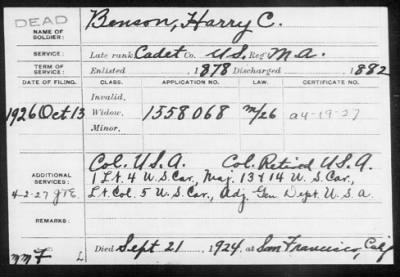 DEAD
NAME OF SOLDIER: Benson, Harry C.
SERVICE: Late rank Cadet Co. U.S. Reg't M.A.
TERM OF SERVICE: Enlisted , 1878 Discharged , 1882
DATE OF FILING. CLASS. APPLICATION NO. LAW. CERTIFICATE NO.
Invalid,
1926 Oct 13 Widow, 1558068 M/26 a4-19-27
Minor,
Col. U.S.A. Col. Retired U.S.A.
ADDITIONAL SERVICES: 1 Lt. 4 U.S. Cav., Maj. 13 & 14 U.S. Cav.,
4-2-27 Lt. Col. 5 U.S. Cav., Adj. Gen Dept. U.S.A.
REMARKS:
Died Sept. 21 , 1924, at San Francisco, Calif
L